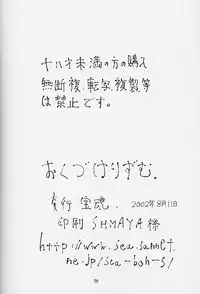 十八才未満の方の購入
無断複、転写、複製等
は禁止です。
おくづけりずむ。
発行 宝魂。
2002年8月11日
印刷 SHMAYA 様
http://www.sea.sannet.
ne.jp/sea-boh-s/